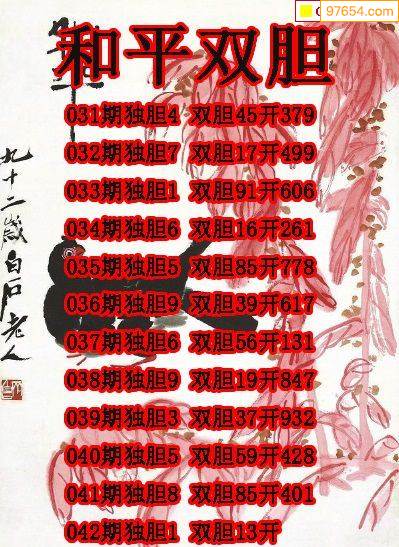 97654.com
和平双胆
031期独胆4 双胆45开379
032期独胆7 双胆17开499
033期独胆1 双胆91开606
034期独胆6 双胆16开261
035期独胆5 双胆85开778
036期独胆9 双胆39开617
037期独胆6 双胆56开131
038期独胆9 双胆19开847
039期独胆3 双胆37开932
040期独胆5 双胆59开428
041期独胆8 双胆85开401
042期独胆1 双胆13开
九十二岁白石老人